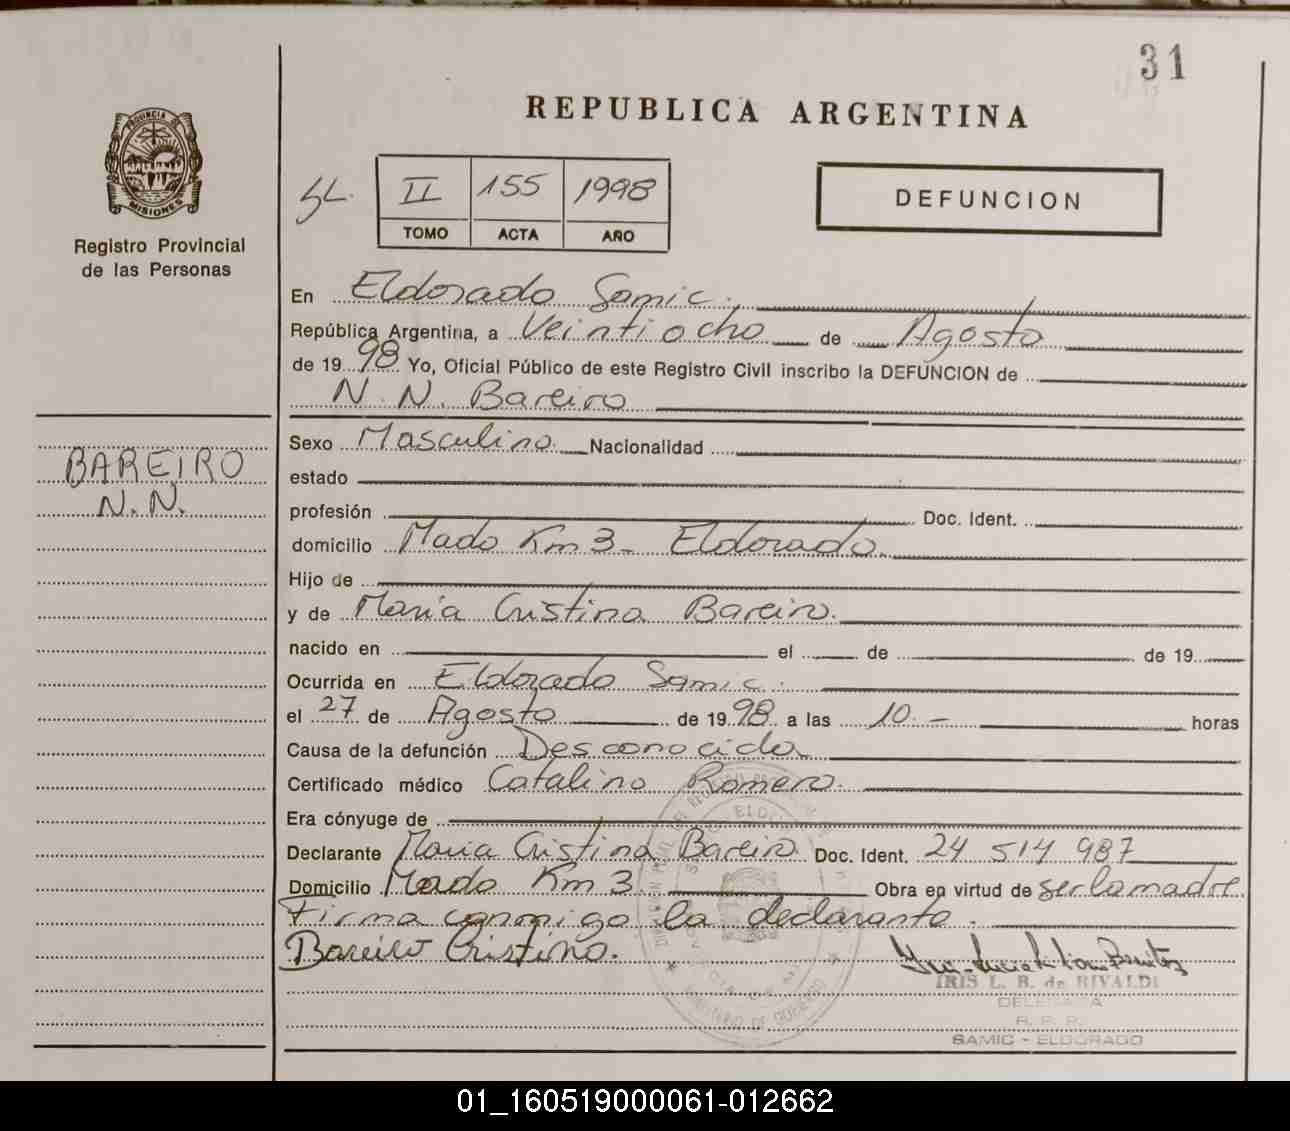 31
REPUBLICA ARGENTINA
PROVINCIA D
MISIONES
Registro Provincial
de las Personas
II 155 1998
TOMO ACTA AÑO
DEFUNCION
En Eldorado Samic.
República Argentina, a Veintiocho de Agosto
de 19 98 Yo, Oficial Público de este Registro Civil inscribo la DEFUNCION de
N. N. Bareiro
BAREIRO
N. N.
Sexo Masculino Nacionalidad
estado
profesión Doc. Ident.
domicilio Mado Km 3 - Eldorado
Hijo de
y de Maria Cristina Bareiro.
nacido en el de de 19
Ocurrida en Eldorado Samic.
el 27 de Agosto de 19 98 a las 10 - horas
Causa de la defunción Desconocida
Certificado médico Catalino Romero.
Era cónyuge de
Declarante Maria Cristina Bareiro Doc. Ident. 24 514 987
Domicilio Mado Km 3. Obra en virtud de ser la madre
Firma conmigo la declarante.
Bareiro Cristina.
IRIS L. B. de RIVALDI
DELEGADA
R. P. P.
SAMIC - ELDORADO
01_160519000061-012662